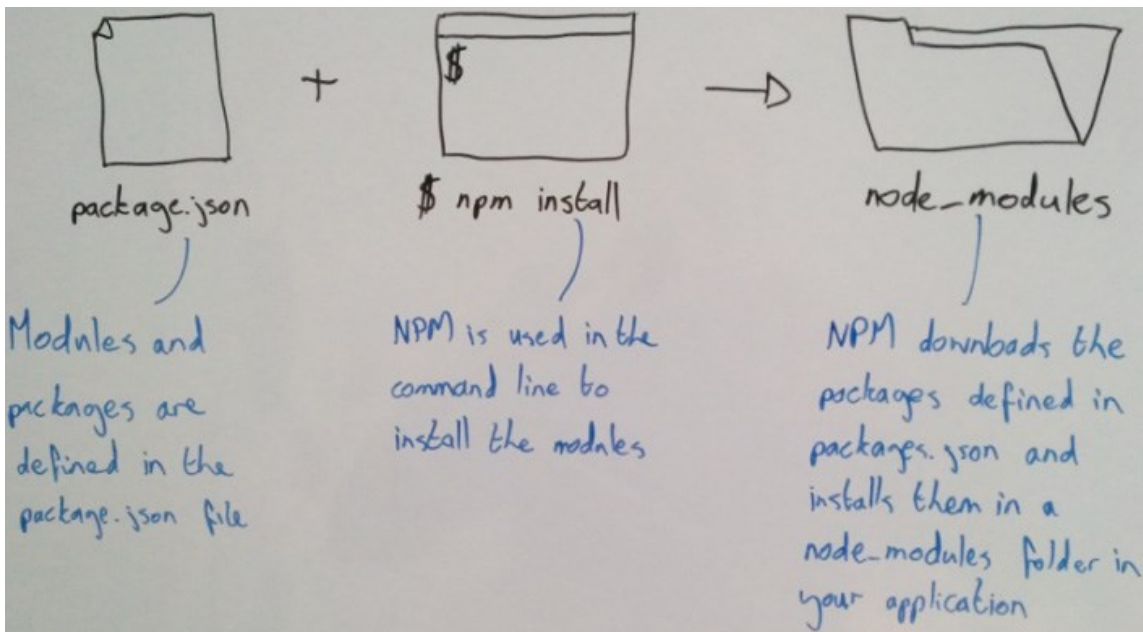 $
package.json
$ npm install
node_modules
Modules and
packages are
defined in the
package.json file
NPM is used in the
command line to
install the modules
NPM downloads the
packages defined in
packages.json and
installs them in a
node_modules folder in
your application